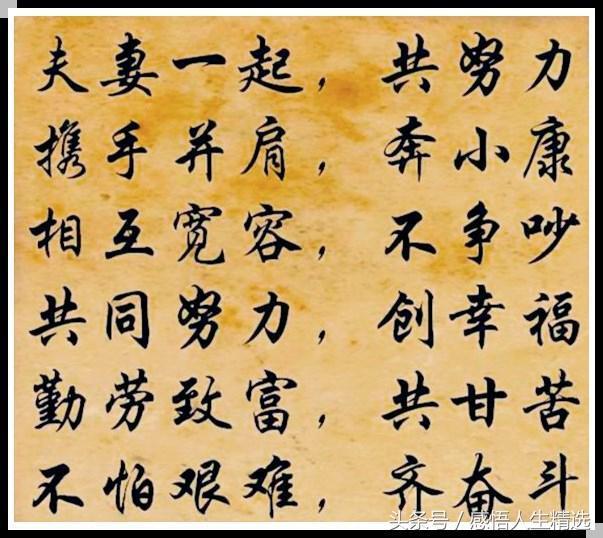 夫妻一起，共努力
携手并肩，奔小康
相互宽容，不争吵
共同努力，创幸福
勤劳致富，共甘苦
不怕艰难，齐奋斗
头条号 / 感悟人生精选